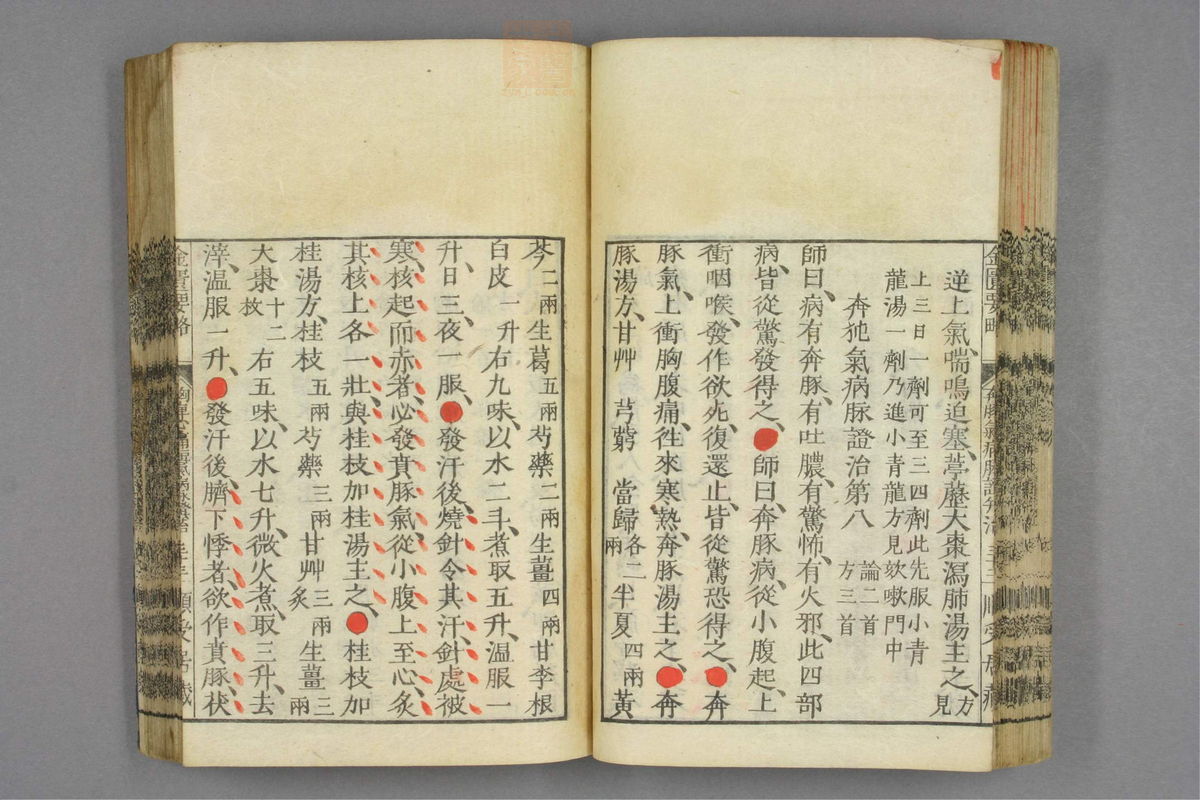 逆上氣、喘鳴迫塞、葶藶大棗瀉肺湯主之、方見
上三日一劑可至三四劑此先服小青
龍湯一劑乃進小青龍方見欬嗽門中
奔㹠氣病脉證治第八　論二首方三首
師曰、病有奔豚、有吐膿、有驚怖、有火邪、此四部
病、皆從驚發得之、●師曰、奔豚病、從小腹起、上
衝咽喉、發作欲死、復還止、皆從驚恐得之、●奔
豚氣、上衝胸腹痛、徃來寒熱、奔豚湯主之、●奔
豚湯方、甘艸　芎藭　當歸各二兩　半夏四兩　黃
芩二兩　生葛五兩　芍藥二兩　生薑四兩　甘李根
白皮一升　右九味、以水二斗、煮取五升、溫服一
升、日三、夜一服、●發汗後、燒針令其汗、針處被
寒、核起而赤者、必發賁豚氣、從小腹上至心、炙
其核上各一壯、與桂枝加桂湯主之、●桂枝加
桂湯方、桂枝五兩　芍藥三兩　甘艸三兩炙　生薑三兩
大棗十二枚　右五味、以水七升、微火煮、取三升、去
滓、溫服一升、●發汗後、臍下悸者、欲作賁豚、茯
金匱要略